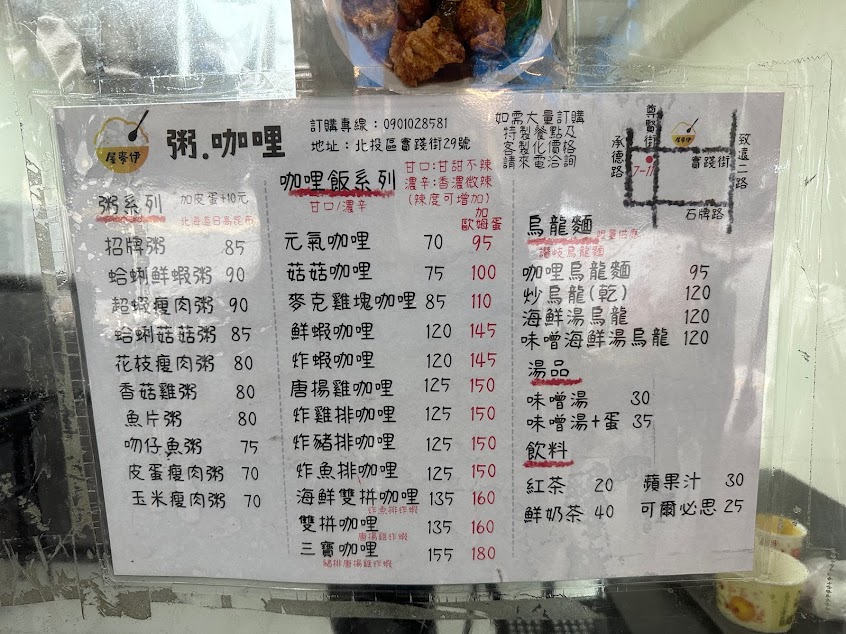 屋麥伊
粥.咖哩
訂購專線：0901028581
地址：北投區實踐街29號
如需大量訂購
特製餐點及
客製化價格
請來電洽詢
尊賢街
承德路
7-11
實踐街
致遠二路
石牌路
粥系列 加皮蛋+10元
北海道日高昆布
招牌粥 85
蛤蜊鮮蝦粥 90
超蝦瘦肉粥 90
蛤蜊菇菇粥 85
花枝瘦肉粥 80
香菇雞粥 80
魚片粥 80
吻仔魚粥 75
皮蛋瘦肉粥 70
玉米瘦肉粥 70
咖哩飯系列
甘口/濃辛
甘口:甘甜不辣
濃辛:香濃微辣
(辣度可增加)
加
歐姆蛋
元氣咖哩 70 95
菇菇咖哩 75 100
麥克雞塊咖哩 85 110
鮮蝦咖哩 120 145
炸蝦咖哩 120 145
唐揚雞咖哩 125 150
炸雞排咖哩 125 150
炸豬排咖哩 125 150
炸魚排咖哩 125 150
海鮮雙拼咖哩 135 160
炸魚排炸蝦
雙拼咖哩 135 160
唐揚雞炸蝦
三寶咖哩 155 180
豬排唐揚雞炸蝦
烏龍麵 限量供應
讚岐烏龍麵
咖哩烏龍麵 95
炒烏龍(乾) 120
海鮮湯烏龍 120
味噌海鮮湯烏龍 120
湯品
味噌湯 30
味噌湯+蛋 35
飲料
紅茶 20 蘋果汁 30
鮮奶茶 40 可爾必思 25